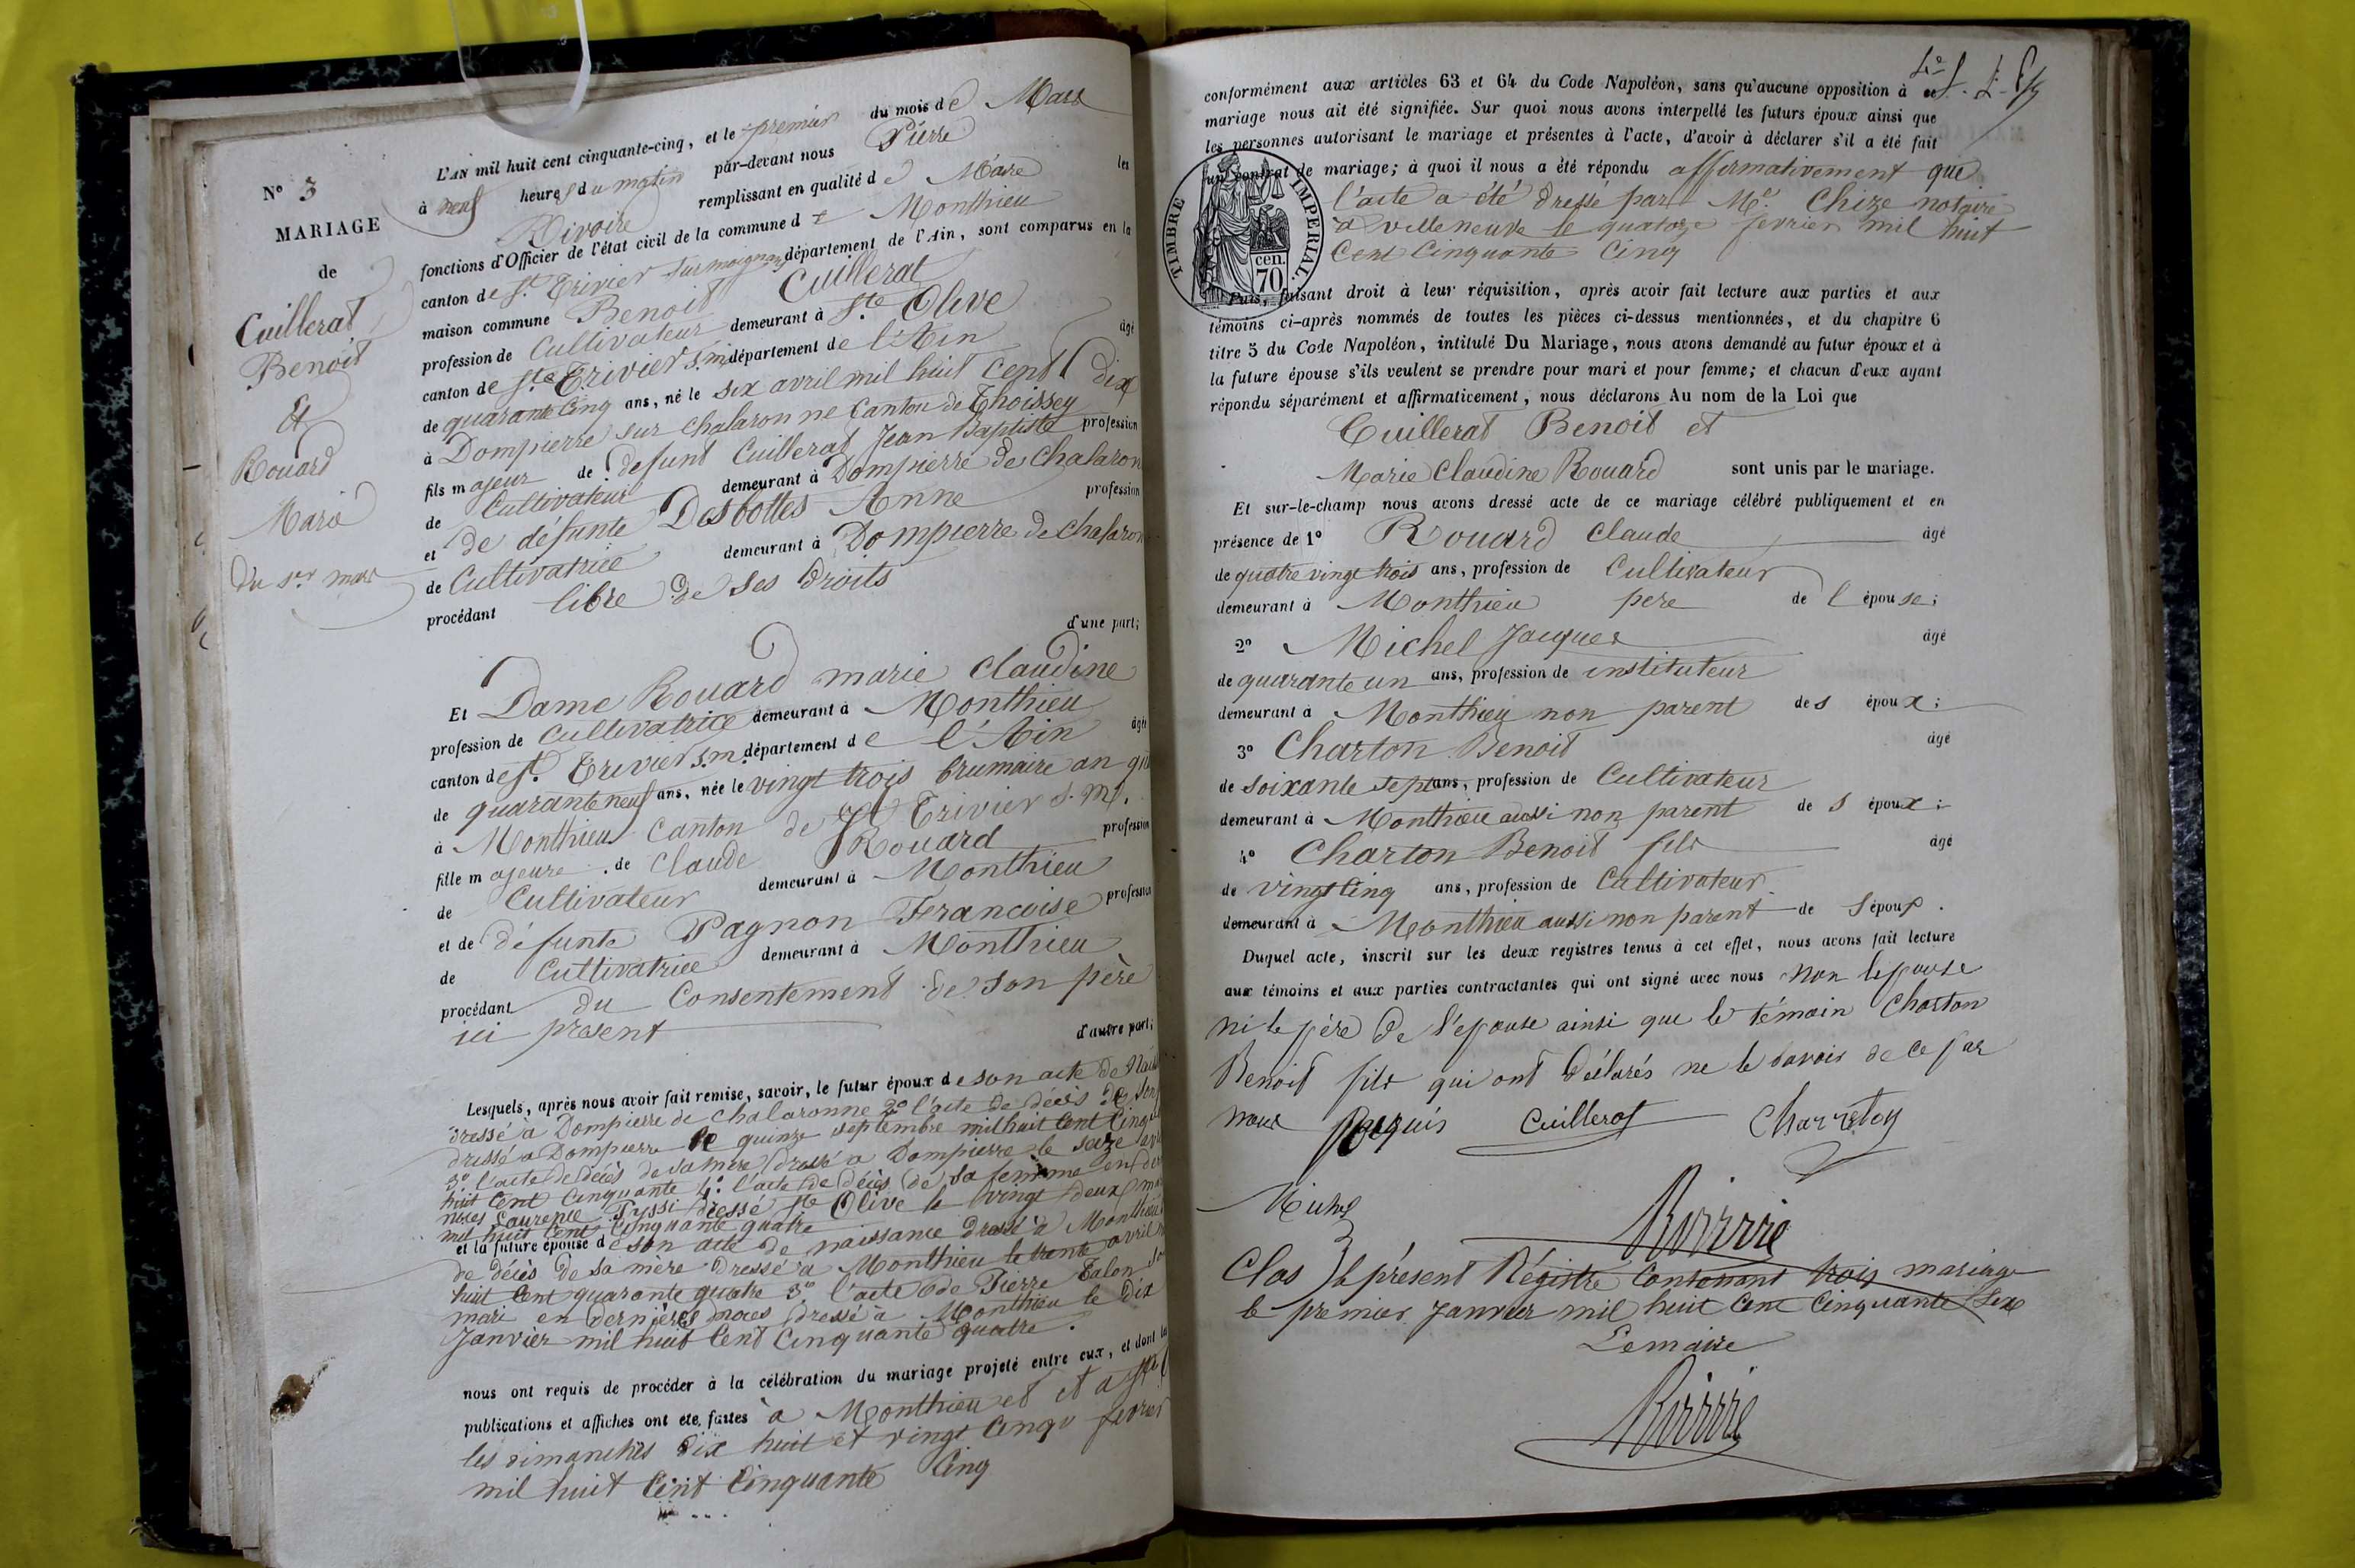 N° 3
MARIAGE
de
Cuillerat
Benoit
Et
Rouard
Marie
Du 1er mars
L'AN mil huit cent cinquante-cinq, et le premier du mois de Mars
à neuf heures du matin par-devant nous Pierre
Rivoire remplissant en qualité de Maire les
fonctions d'Officier de l'état civil de la commune de Monthieu
canton de St Trivier sur moignans département de l'Ain, sont comparus en la
maison commune Benoit Cuillerat
profession de Cultivateur demeurant à Ste Olive
canton de St Trivier s.m. département de l'Ain âgé
de quarante cinq ans, né le six avril mil huit cent dix
à Dompierre sur chalaronne Canton de Thoissey
fils majeur de défunt Cuillerat Jean Baptiste profession
de Cultivateur demeurant à Dompierre de Chalaron
et de défunte Desbottes Anne profession
de Cultivatrice demeurant à Dompierre de chalaron
procédant libre de ses droits
d'une part;
Et Dame Rouard marie Claudine
profession de Cultivatrice demeurant à Monthieu
canton de St Trivier s.m. département de l'Ain âgée
de quarante neuf ans, née le vingt trois brumaire an
à Monthieu Canton de St Trivier s. m.
fille majeure de Claude Rouard profession
de Cultivateur demeurant à Monthieu
et de défunte Pagnon Francoise profession
de Cultivatrice demeurant à Monthieu
procédant du Consentement de son père
ici présent
d'autre part;
Lesquels, après nous avoir fait remise, savoir, le futur époux de son acte de
dressé à Dompierre de Chalaronne 2° l'acte de décès de son
dressé à Dompierre le quinze septembre mil huit cent
3° l'acte de décès de sa mère dressé à Dompierre le seize
huit cent cinquante 4° l'acte de décès de sa femme en
noces Laurence dressé Ste Olive le vingt deux
mil huit cent cinquante quatre
et la future épouse de son acte de naissance dressé à Monthieu
de décès de sa mère dressé à Monthieu le trente avril
huit cent quarante quatre 3° l'acte de Pierre Talon
mari en dernières noces dressé à Monthieu le dix
Janvier mil huit cent cinquante quatre.
nous ont requis de procéder à la célébration du mariage projeté entre eux, et dont la
publications et affiches ont été faites à Monthieu et
les dimanches dix huit et vingt cinq fevrier
mil huit cent cinquante cinq
conformément aux articles 63 et 64 du Code Napoléon, sans qu'aucune opposition à ce
mariage nous ait été signifiée. Sur quoi nous avons interpellé les futurs époux ainsi que
les personnes autorisant le mariage et présentes à l'acte, d'avoir à déclarer s'il a été fait
un contrat de mariage; à quoi il nous a été répondu affirmativement que
l'acte a été dressé par Me Chize notaire
à villeneuve le quatorze fevrier mil huit
Cent Cinquante Cinq
TIMBRE IMPÉRIAL.
cen.
70
Puis, faisant droit à leur réquisition, après avoir fait lecture aux parties et aux
témoins ci-après nommés de toutes les pièces ci-dessus mentionnées, et du chapitre 6
titre 5 du Code Napoléon, intitulé Du Mariage, nous avons demandé au futur époux et à
la future épouse s'ils veulent se prendre pour mari et pour femme; et chacun d'eux ayant
répondu séparément et affirmativement, nous déclarons Au nom de la Loi que
Cuillerat Benoit et
Marie Claudine Rouard sont unis par le mariage.
Et sur-le-champ nous avons dressé acte de ce mariage célébré publiquement et en
présence de 1° Rouard Claude âgé
de quatre vingt trois ans, profession de Cultivateur
demeurant à Monthieu pere de l'épouse;
2° Michel Jacques âgé
de quarante un ans, profession de instituteur
demeurant à Monthieu non parent des époux;
3° Charton Benoit âgé
de soixante sept ans, profession de Cultivateur
demeurant à Monthieu aussi non parent des époux;
4° Charton Benoit fils âgé
de vingt cinq ans, profession de Cultivateur
demeurant à Monthieu aussi non parent des époux.
Duquel acte, inscrit sur les deux registres tenus à cet effet, nous avons fait lecture
aux témoins et aux parties contractantes qui ont signé avec nous non l'epouse
ni le père de l'epouse ainsi que le témoin Charton
Benoit fils qui ont déclarés ne le savoir de ce par
nous requis Cuillerat Charreton
Michel
Rivoire
Clos le présent Régistre Contenant trois mariage
le premier Janvier mil huit cent cinquante six
Lemaire
Rivoire